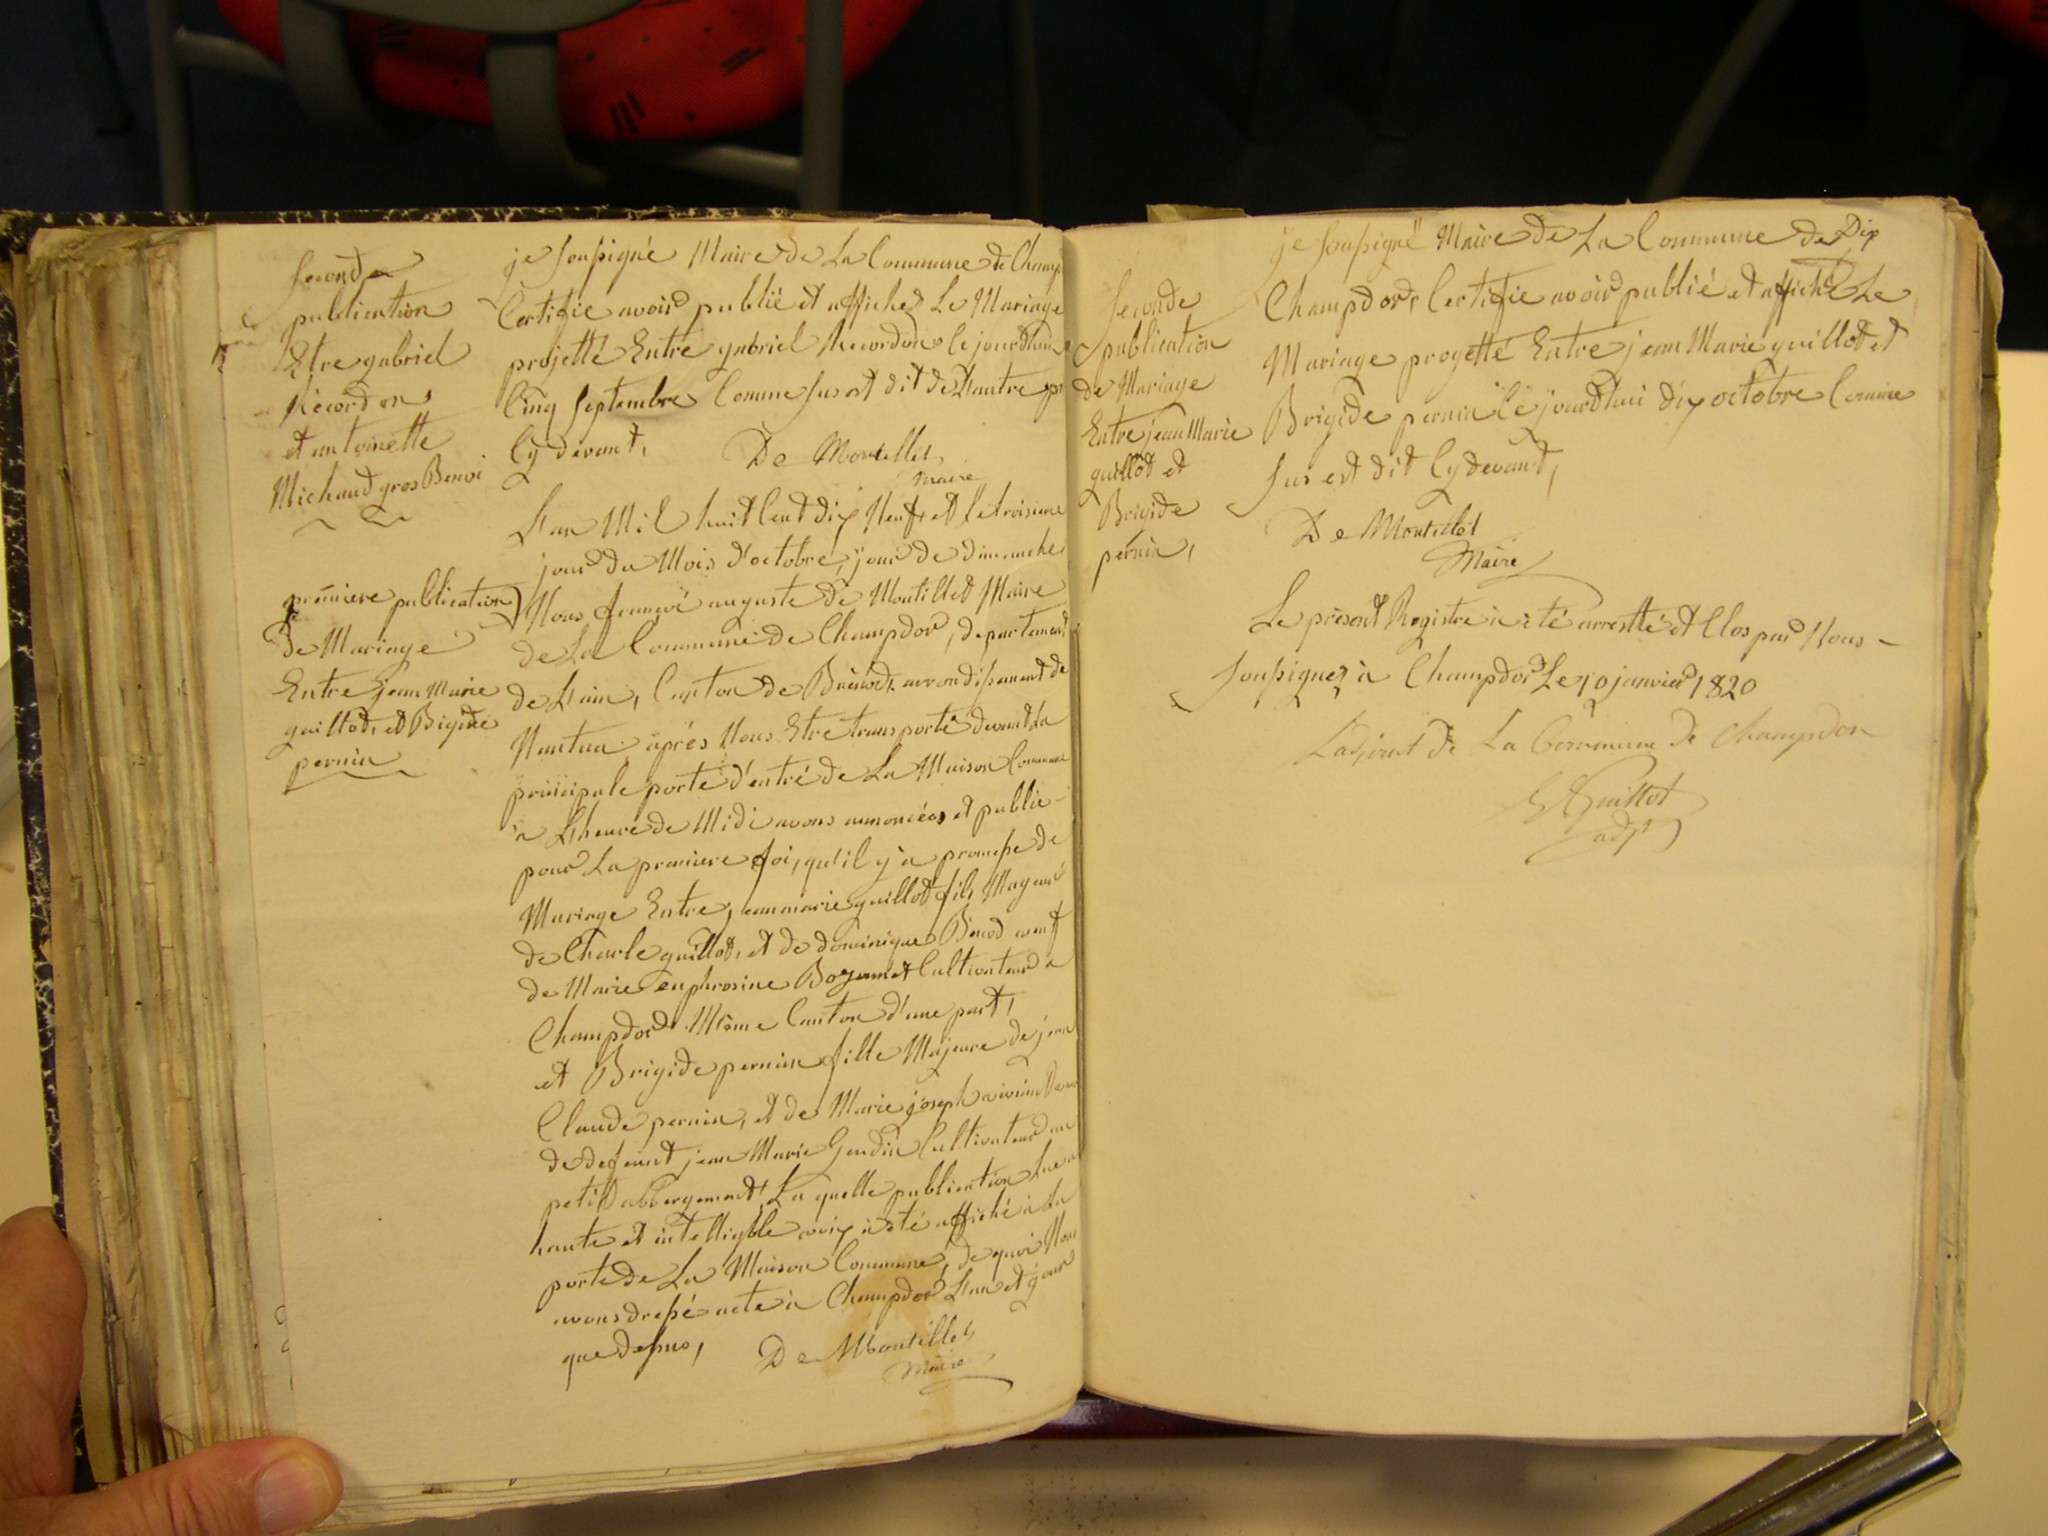 Seconde
publication
Etre gabriel
Recordon
et antoinette
Michaud gros Benoi
je soussigné Maire de La Commune de Champ
Certifie avoir publié et affiché Le Mariage
projetté Entre gabriel Recordon ce jourdhui
Cinq Septembre Comme sus est dit de Lautre
Cy devant,
De Montillet
Maire
premiere publication
de Mariage
Entre jean Marie
guillot, et Bigide
pernin
L'an Mil huit Cent dix Neuf et le troisieme
jour du Mois d'octobre, jour de dimanche
Nous françoi auguste de Montillet Maire
de La Commune de Champdor, departement
de L'ain, Canton de Brénod, arrondissement de
Nantua après Nous Etre transporté devant La
principale porte d'entré de La Maison Commune
a L'heure de Midi avons annoncées et publie
pour La premiere foi, qu'il y a promesse de
Mariage Entre jeanmarie guillot fils Mageur
de Charle guillot, et de dominique Benod veuf
de Marie euphrosine Boyamet Cultivateur a
Champdor Même Canton d'une part,
et Brigide pernin fille Majeure de jean
Claude pernin, et de Marie joseph
de defunt jean Marie Gondin Cultivateur au
petit abbergement, La quelle publication Lue a
haute et intelligble voix à eté affiché à La
porte de La Maison Commune, de quoi Nous
avons dressé acte à Champdor L'an et jour
que dessus,
De Montillet
Maire
Seconde
publication
de Mariage
Entre jean Marie
guillot et
Brigide
pernin,
je soussigné Maire de La Commune de Dix
Champdor, Certifie avoir publié et affiché Le
Mariage progetté Entre jean Marie guillot et
Brigide pernin Ce jourdhui dix octobre Comme
sus est dit Cy devant,
De Montillet
Maire
Le présent Registre à eté arrestté et Clos par Nous
soussignez à Champdor Le 10 janvier 1820
Ladjoint de La Commune de Champdor
Guillot
adjt